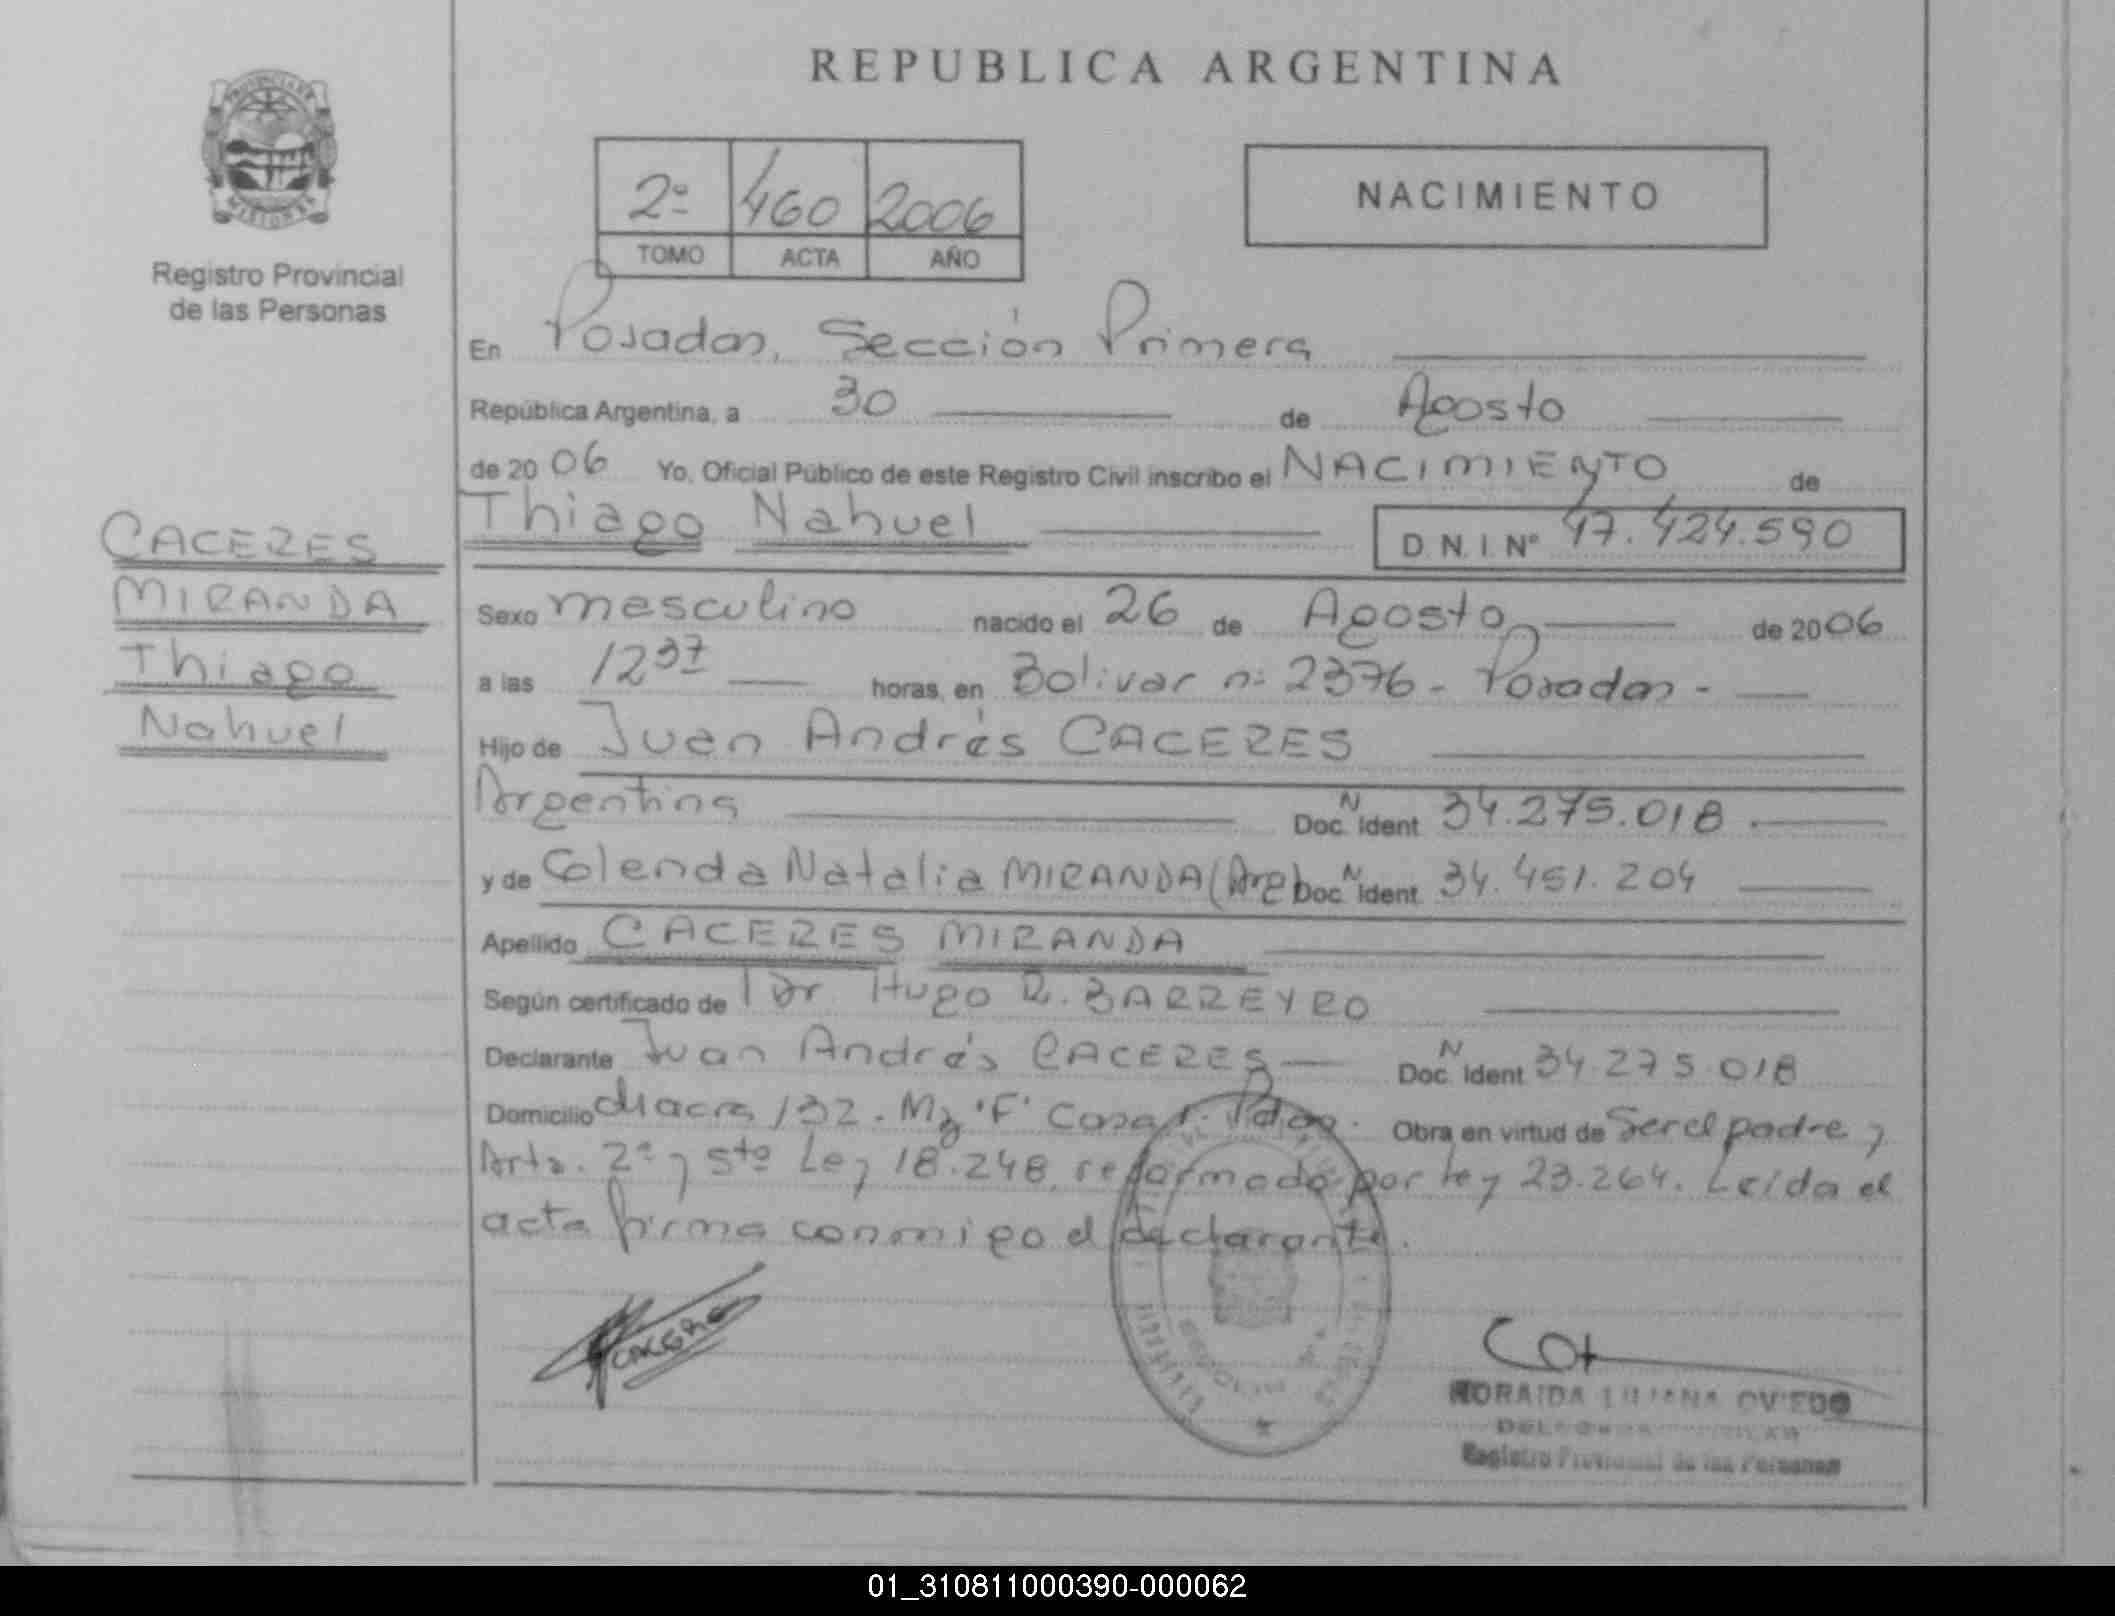 REPUBLICA ARGENTINA
PROVINCIA DE
MISIONES
Registro Provincial
de las Personas
2º 460 2006
TOMO ACTA AÑO
NACIMIENTO
En Posadas, Sección Primera
República Argentina, a 30 de Agosto
de 2006 Yo, Oficial Público de este Registro Civil inscribo el NACIMIENTO de
Thiago Nahuel D.N.I. Nº 47.424.590
CACERES
MIRANDA
Thiago
Nahuel
Sexo masculino nacido el 26 de Agosto de 2006
a las 12 37 horas, en Bolivar nº 2376 - Posadas -
Hijo de Juan Andrés CACERES
Argentina Doc. N Ident. 34.275.018
y de Colenda Natalia MIRANDA (Arg) Doc. N Ident. 34.451.204
Apellido CACERES MIRANDA
Según certificado de Dr. Hugo R. BARREYRO
Declarante Juan Andrés CACERES Doc. N Ident. 34.275.018
Domicilio Chacra 132. Mz 'F' Casa Pdas. Obra en virtud de Ser el padre y
Arts. 2º y 5to Ley 18.248, reformado por ley 23.264. Leida el
acta firma conmigo el declarante.
CACERES
LILIANA OVIEDO
Registro Provincial de las Personas
01_310811000390-000062